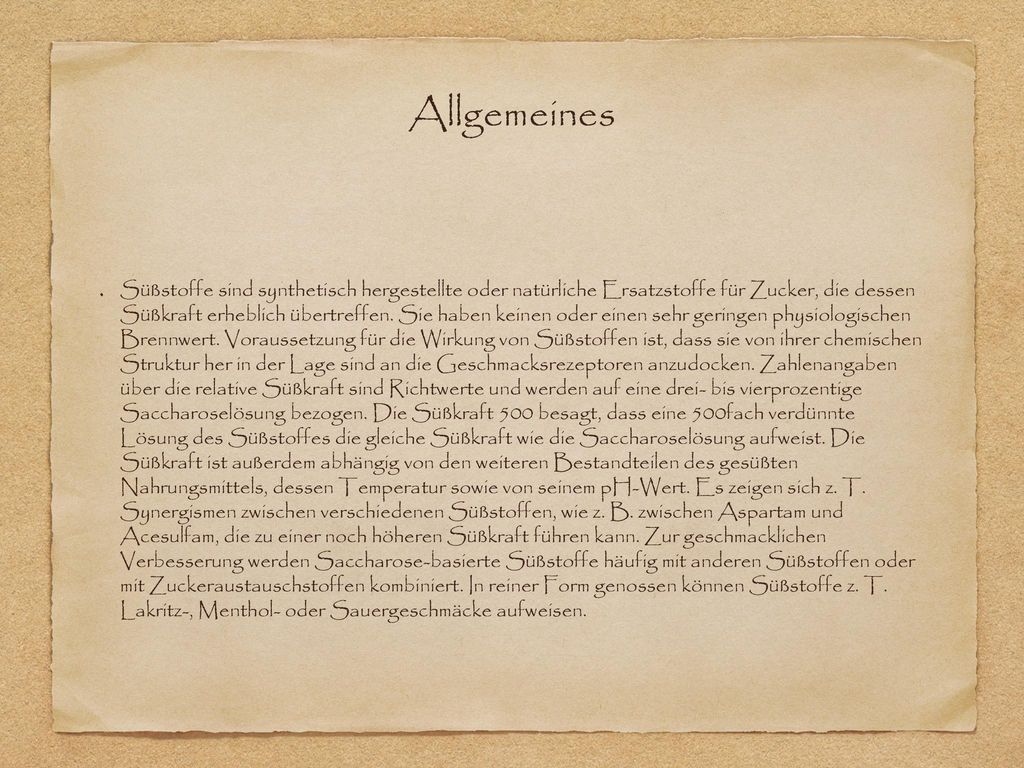 Allgemeines
• Süßstoffe sind synthetisch hergestellte oder natürliche Ersatzstoffe für Zucker, die dessen
Süßkraft erheblich übertreffen. Sie haben keinen oder einen sehr geringen physiologischen
Brennwert. Voraussetzung für die Wirkung von Süßstoffen ist, dass sie von ihrer chemischen
Struktur her in der Lage sind an die Geschmacksrezeptoren anzudocken. Zahlenangaben
über die relative Süßkraft sind Richtwerte und werden auf eine drei- bis vierprozentige
Saccharoselösung bezogen. Die Süßkraft 500 besagt, dass eine 500fach verdünnte
Lösung des Süßstoffes die gleiche Süßkraft wie die Saccharoselösung aufweist. Die
Süßkraft ist außerdem abhängig von den weiteren Bestandteilen des gesüßten
Nahrungsmittels, dessen Temperatur sowie von seinem pH-Wert. Es zeigen sich z. T.
Synergismen zwischen verschiedenen Süßstoffen, wie z. B. zwischen Aspartam und
Acesulfam, die zu einer noch höheren Süßkraft führen kann. Zur geschmacklichen
Verbesserung werden Saccharose-basierte Süßstoffe häufig mit anderen Süßstoffen oder
mit Zuckeraustauschstoffen kombiniert. In reiner Form genossen können Süßstoffe z. T.
Lakritz-, Menthol- oder Sauergeschmäcke aufweisen.